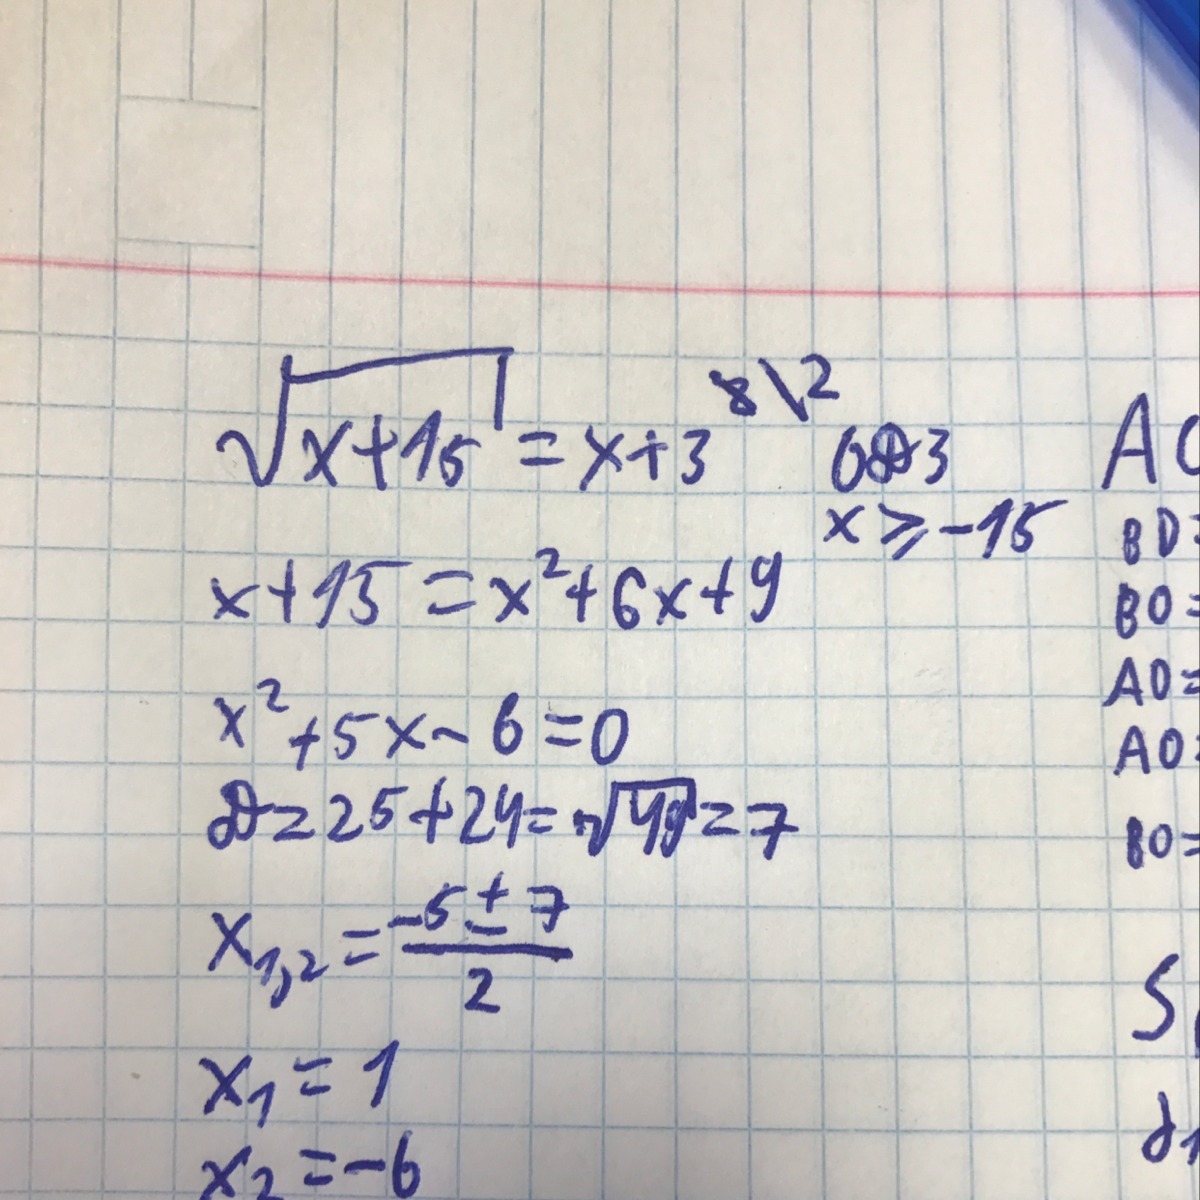 √(x+15) = x+3 |\2 ОДЗ
x ⩾ -15
x+15 = x²+6x+9
x²+5x-6=0
D=25+24=√49=7
x₁,₂ = (-5±7)/2
x₁ = 1
x₂ = -6
BD=
BO=
AO=
AO=
BO=
S